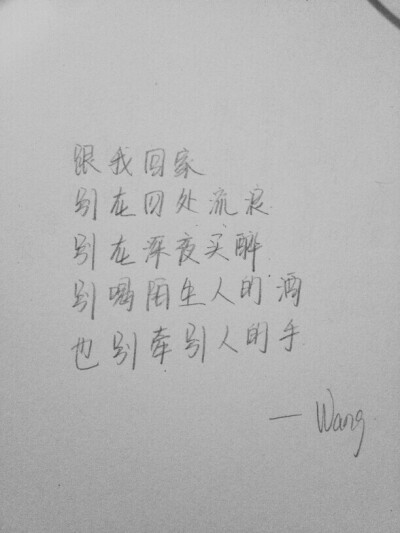 跟我回家
别在四处流浪
别在深夜买醉
别喝陌生人的酒
也别牵别人的手
— Wang